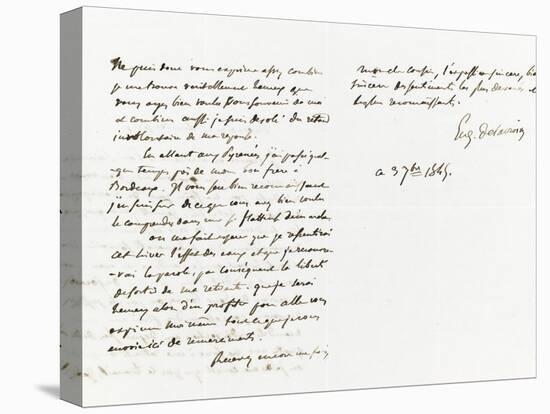 Ne puis donc vous exprimer assez combien
je me trouve véritablement heureux que
vous ayez bien voulu vous souvenir de moi
et combien aussi je suis désolé du retard
involontaire de ma réponse.
En allant aux Pyrénées j'ai passé quel-
que temps près de mon frère à
Bordeaux. Je vous suis bien reconnaissant
de ce que vous avez bien voulu
le comprendre dans une si
on me fait espérer que je
cet hiver l'effet des eaux et que je recouvre-
-rai la parole, par conséquent la liberté
de sortir de ma retraite. que je serai
heureux alors d'en profiter pour aller vous
exprimer moi même tout ce que je vous
envoie ici de remerciments.
Recevez encore une fois
mon cher cousin, l'expression sincère, bien
sincère des sentiments les plus dévoués et
les plus reconnaissants.
Eug. Delacroix
ce 3 7bre 1845.